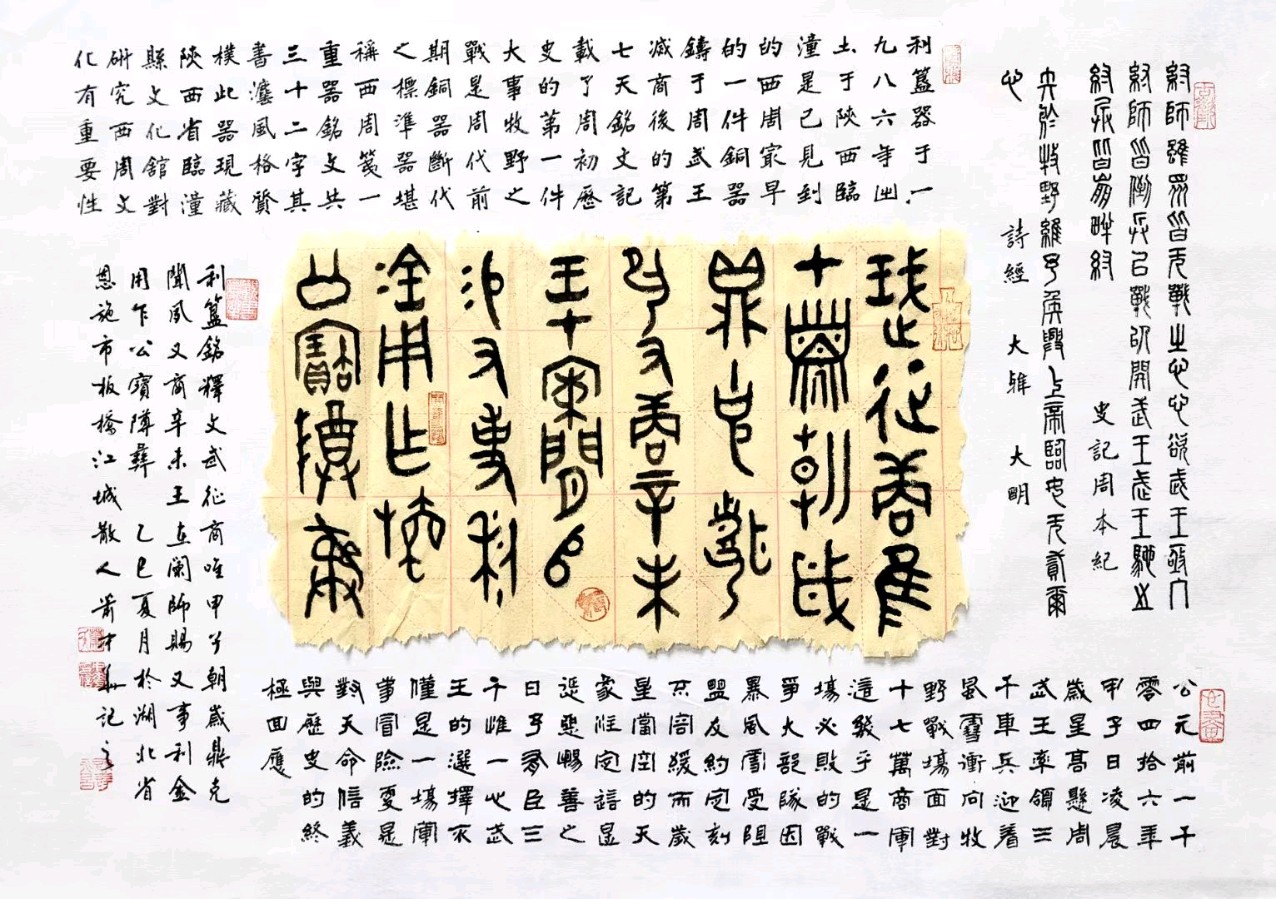 紂師雖眾皆无戰之心心欲武王亟入
紂師皆倒兵以戰以開武王武王馳之
紂兵皆崩畔紂 史記周本紀
矢於牧野維予侯興上帝臨女无貳爾
心 詩經 大雅 大明
利簋器于一
九八六寺出
土于陝西臨
潼是已見到
的西周冣早
的一件銅器
鑄于周武王
滅商後的第
七天銘文記
載了周初歷
史的第一件
大事牧野之
戰是周代前
期銅器斷代
之標準器堪
稱西周篾一
重器銘文共
三十二字其
書瀘風格質
樸此器現藏
陝西省臨潼
縣文化館對
研究西周文
化有重要性
珷征商隹
甲子朝歲
鼎克聞
夙又商辛未
王才闌師
易又事利
金用乍旜
公寶尊彝
利簋銘釋文武征商唯甲子朝歲鼎克
聞夙又商辛未王在闌師賜又事利金
用乍公寶障彝 乙巳夏月於湖北省
恩施市板橋江城散人才華記之
公元前一千
零四拾六年
甲子日凌晨
歲星高懸周
武王率領三
千車兵迎着
風雪衝向牧
野戰場面對
十七萬商軍
這幾乎是一
場必敗的戰
爭大部隊因
暴風雪受阻
盟友約定刻
不容緩而歲
星當空的天
象註定
善之
日子君臣三
千惟一心武
王的選擇不
僅是一場軍
事冒險更是
對天命信義
與歷史的終
極回應